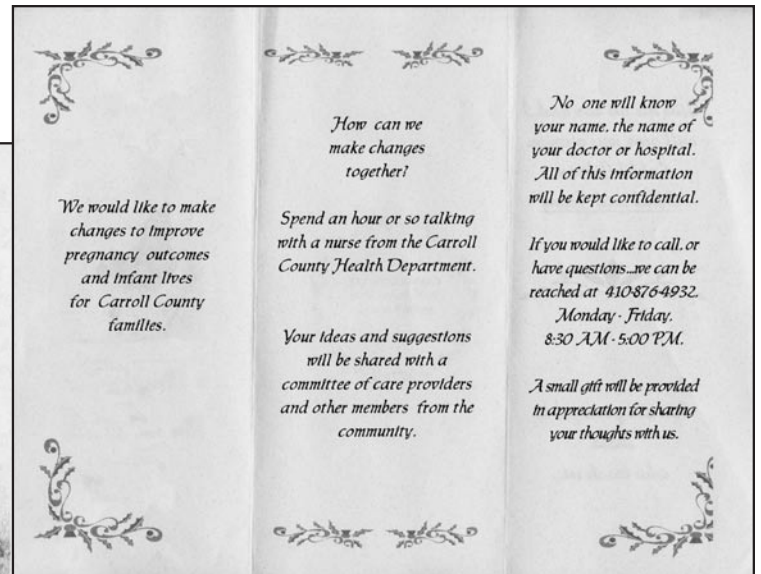 We would like to make
changes to improve
pregnancy outcomes
and infant lives
for Carroll County
families.
How can we
make changes
together?
Spend an hour or so talking
with a nurse from the Carroll
County Health Department.
Your ideas and suggestions
will be shared with a
committee of care providers
and other members from the
community.
No one will know
your name, the name of
your doctor or hospital.
All of this information
will be kept confidential.
If you would like to call, or
have questions...we can be
reached at 410-876-4932.
Monday - Friday.
8:30 AM - 5:00 P.M.
A small gift will be provided
in appreciation for sharing
your thoughts with us.